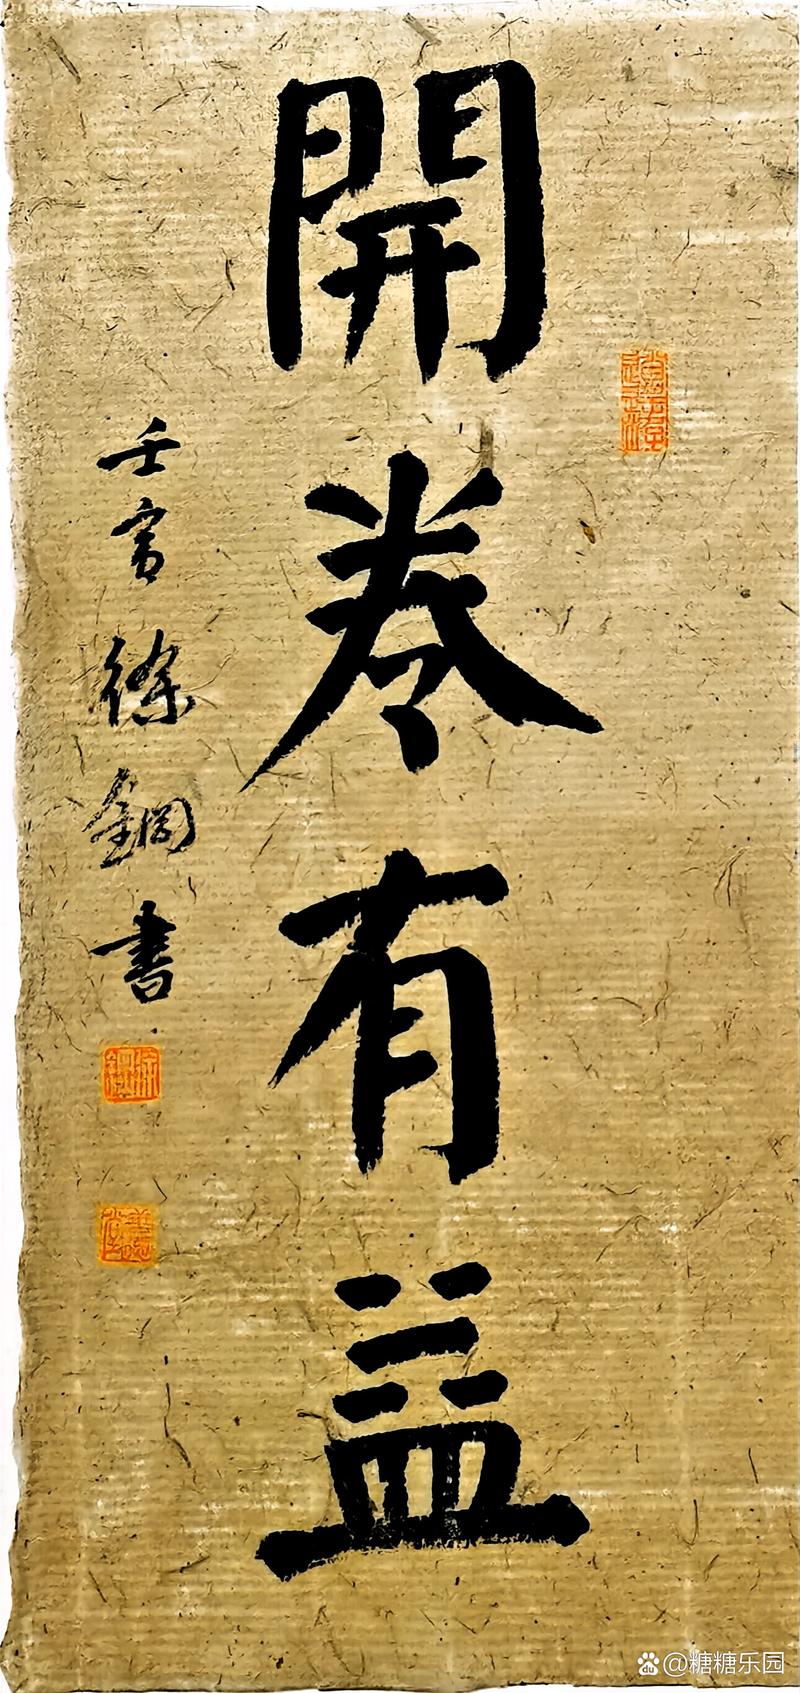 開卷有益
壬寅徐鋼書
@糖糖乐园